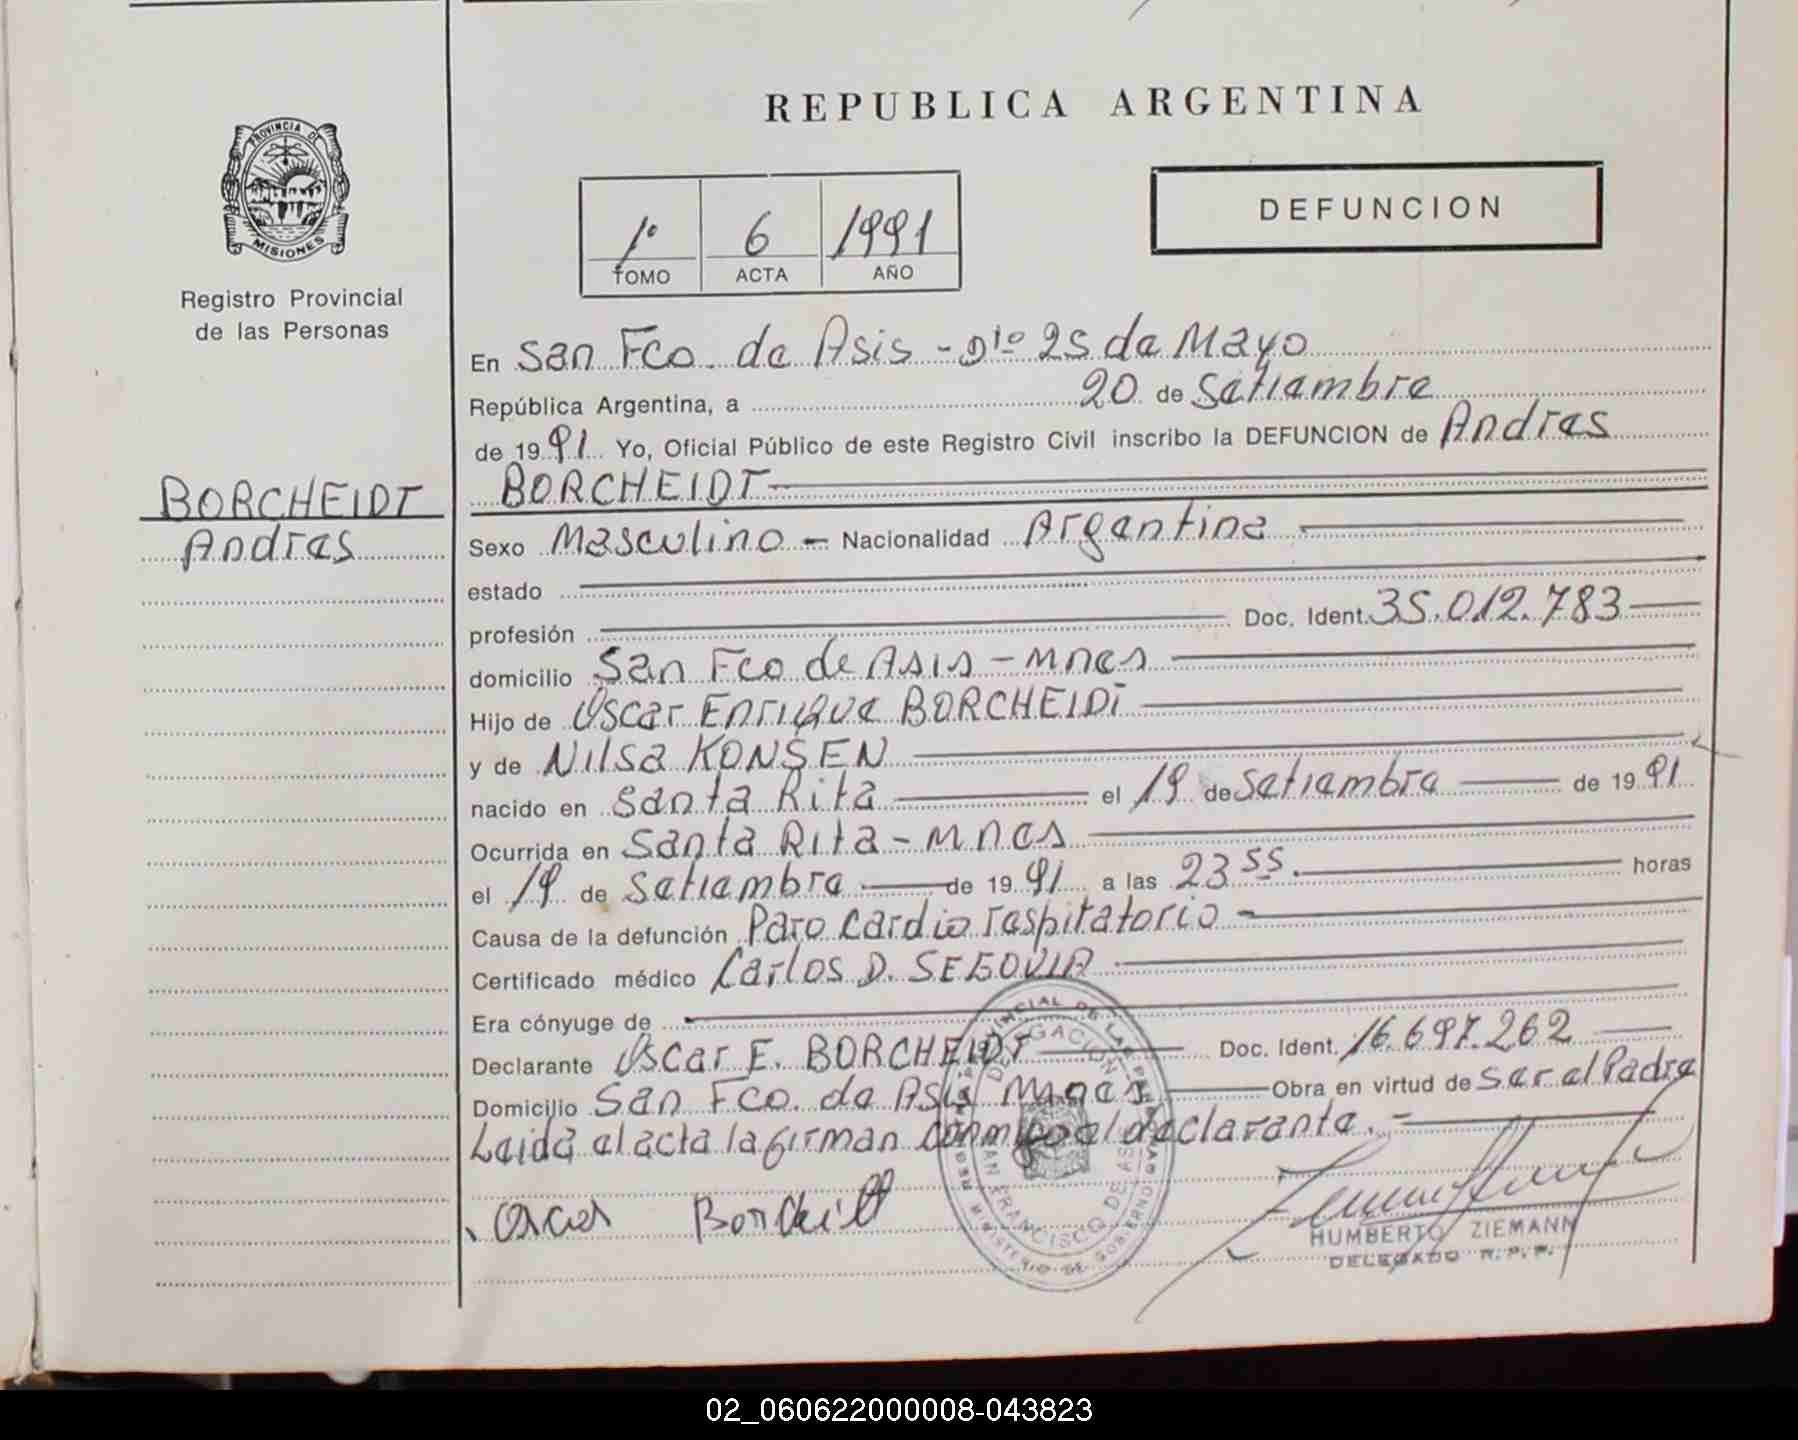 REPUBLICA ARGENTINA
PROVINCIA DE
MISIONES
Registro Provincial
de las Personas
1º 6 1991
TOMO ACTA AÑO
DEFUNCION
En San Fco. de Asis - Dto 25 de Mayo
República Argentina, a 20 de Setiembre
de 1991 Yo, Oficial Público de este Registro Civil inscribo la DEFUNCION de Andres
BORCHEIDT
BORCHEIDT
Andres
Sexo Masculino - Nacionalidad Argentina
estado
profesión Doc. Ident. 35.012.783
domicilio San Fco de Asis - Mnes
Hijo de Oscar Enrique BORCHEIDT
y de Nilsa KONSEN
nacido en Santa Rita el 19 de Setiembre de 1991
Ocurrida en Santa Rita - Mnes
el 19 de Setiembre de 1991 a las 23 55 horas
Causa de la defunción Paro cardio respitatorio
Certificado médico Carlos D. SEGOVIA
Era cónyuge de
Declarante Oscar E. BORCHEIDT Doc. Ident. 16.697.262
Domicilio San Fco. de Asis Mnes Obra en virtud de ser el Padre
Leida el acta la firman conmigo el declarante. -
Oscar Borcheidt
DELEGACION
SAN FRANCISCO DE ASIS
MINISTERIO DE GOBIERNO
HUMBERTO ZIEMANN
DELEGADO R.P.P.
02_060622000008-043823